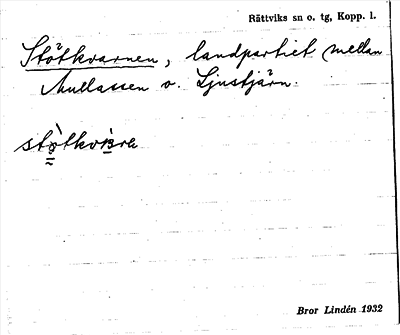 Rättviks sn o. tg, Kopp. l.
Stötkvarnen, landpartiet mellan
Mullassen o. Ljustjärn.
Bror Lindén 1932